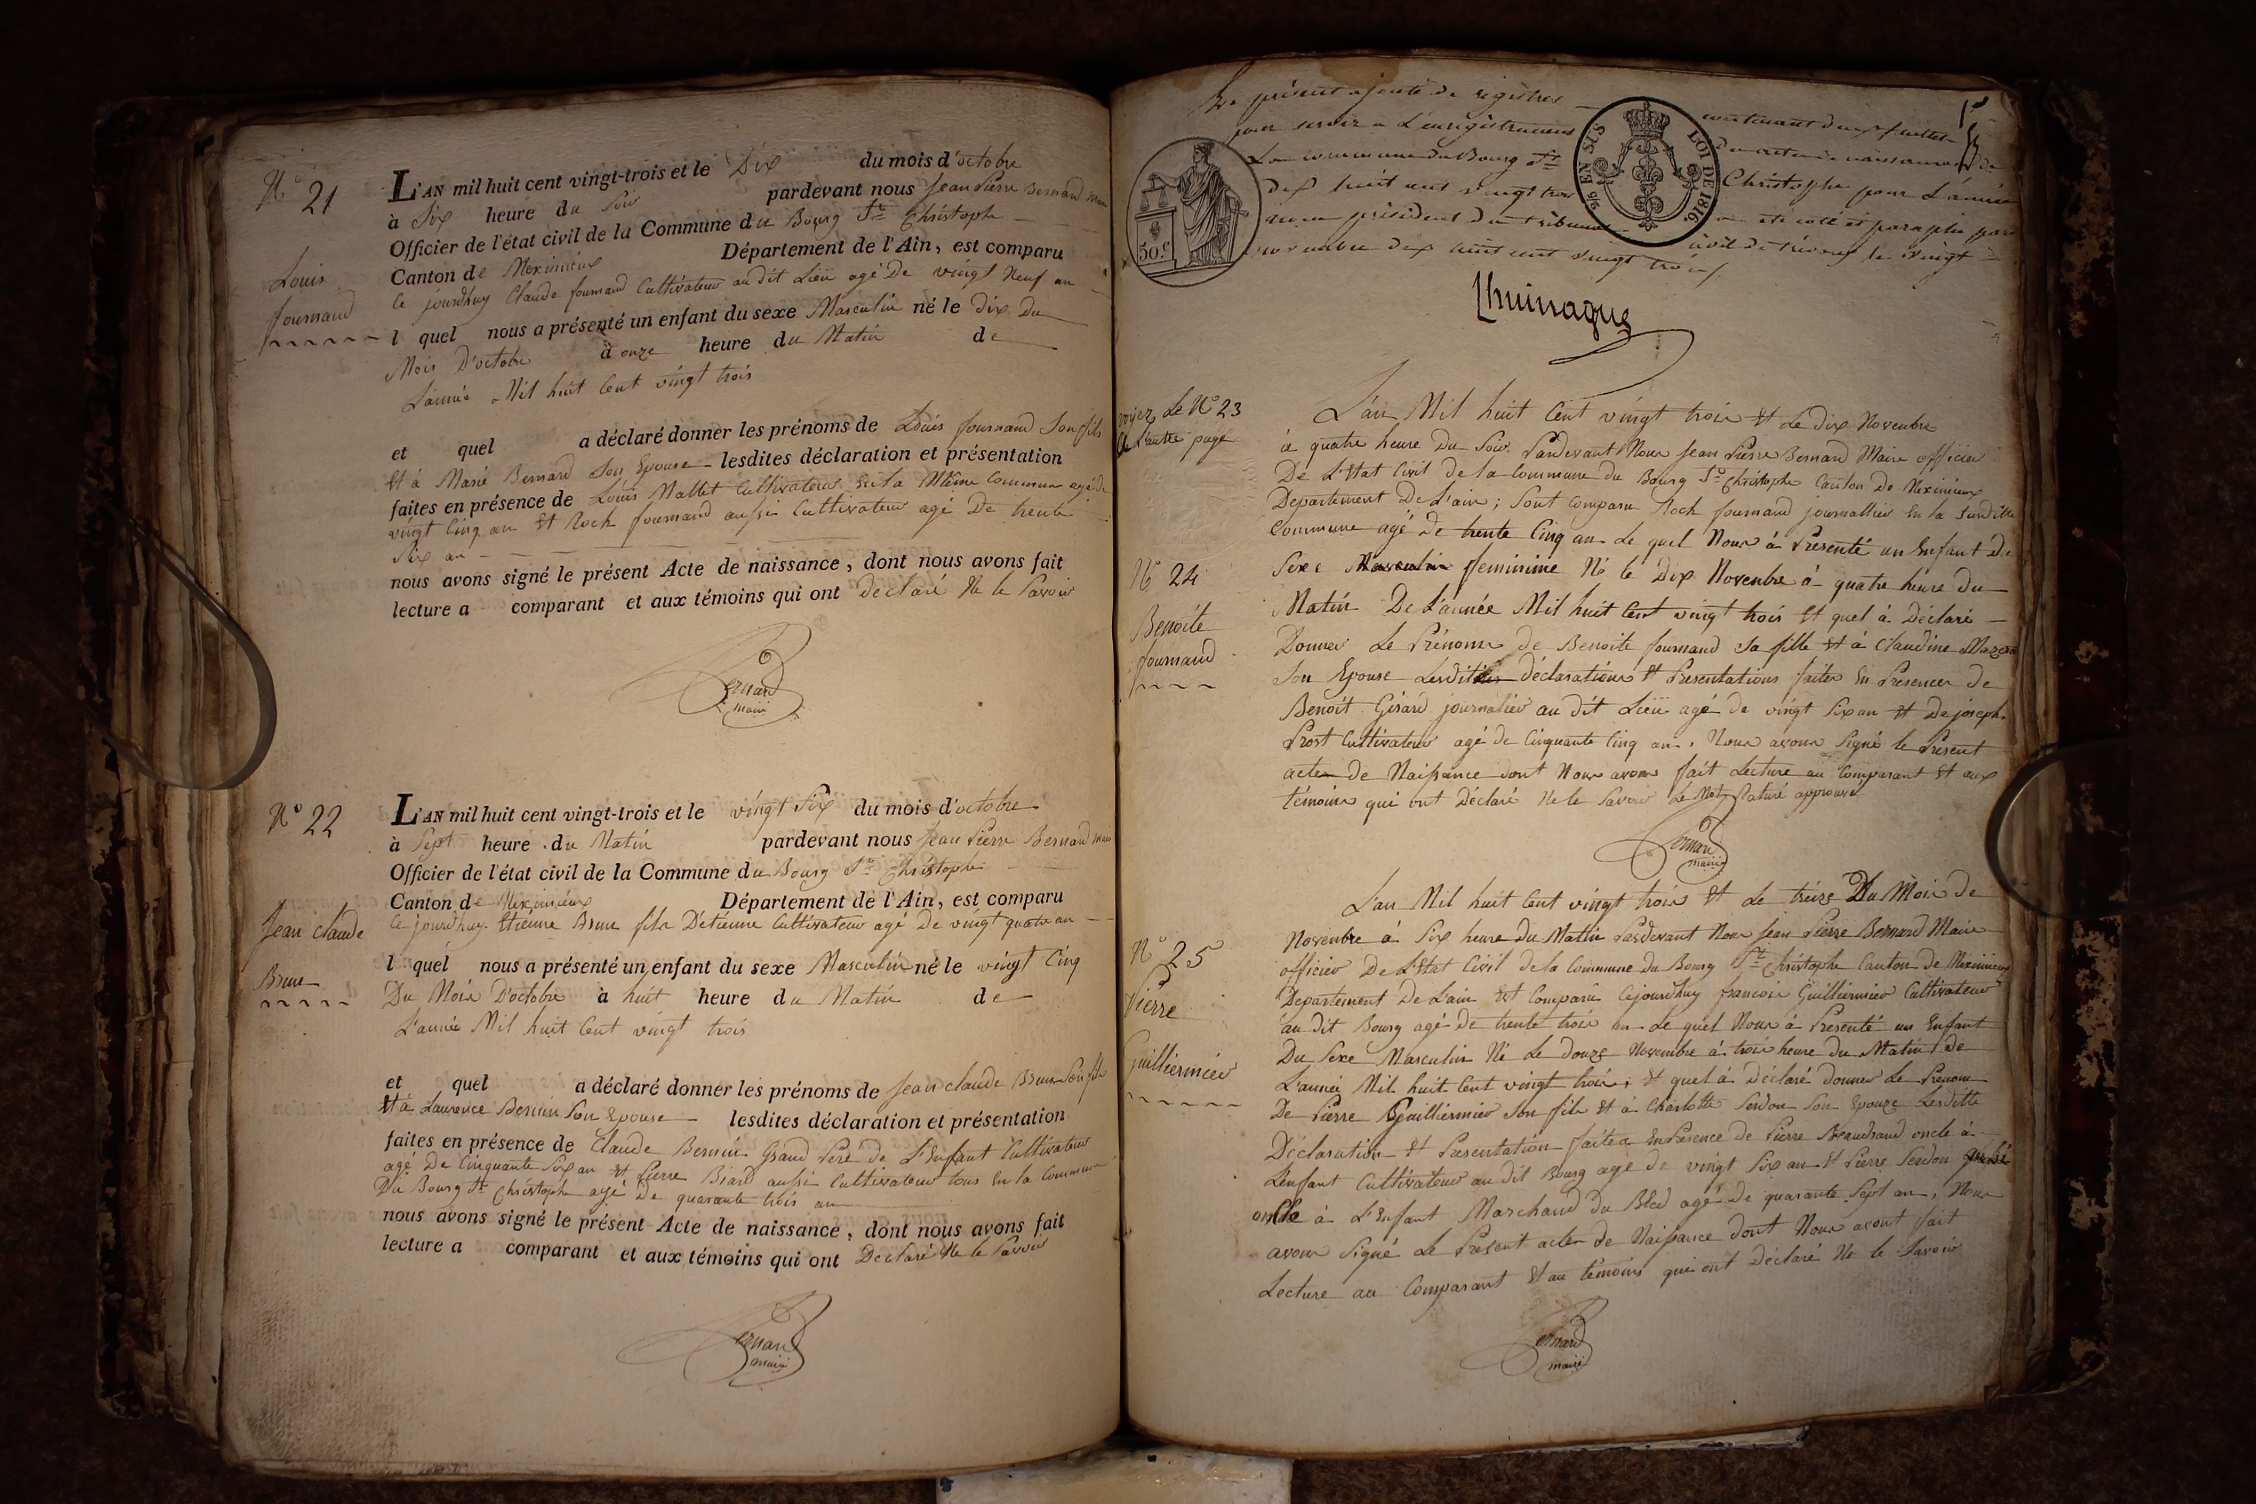 N° 21
Louis
fournand
L'AN mil huit cent vingt-trois et le Dix du mois d'octobre
à Six heure du Soir pardevant nous Jean Pierre Bernard maire
Officier de l'état civil de la Commune du Bourg St Christophe
Canton de Meximieux Département de l'Ain, est comparu
Ce jourdhuy Claude fournand Cultivateur au dit Lieü agé De vingt Neuf an
l quel nous a présenté un enfant du sexe Masculin né le Dix Du
Mois D'octobre à onze heure du Matin de
L'année Mil huit Cent vingt trois
et quel a déclaré donner les prénoms de Louis fournand Son fils
Et à Marie Bernard Son Epouse lesdites déclaration et présentation
faites en présence de Louis Mallet Cultivateur En la Même Commune agé de
vingt Cinq an Et Roch fournand aussi Cultivateur agé De trente
Six an
nous avons signé le présent Acte de naissance, dont nous avons fait
lecture a comparant et aux témoins qui ont déclaré Ne le Savoir
Bernard
maire
N° 22
Jean Claude
Brun
L'AN mil huit cent vingt-trois et le vingt Six du mois d'octobre
à Sept heure du Matin pardevant nous Jean Pierre Bernard maire
Officier de l'état civil de la Commune du Bourg St Christophe
Canton de Meximieux Département de l'Ain, est comparu
Ce jourdhuy Etienne Brun fils D'etienne Cultivateur agé De vingt quatre an
l quel nous a présenté un enfant du sexe Masculin né le vingt Cinq
Du Mois D'octobre à huit heure du Matin de
L'année Mil huit Cent vingt trois
et quel a déclaré donner les prénoms de Jean Claude Brun Son fils
Et à Laurence Bernin Son Epouse lesdites déclaration et présentation
faites en présence de Claude Bernin Grand Pere de L'Enfant Cultivateur
agé De Cinquante Six an Et Pierre Biard aussi Cultivateur tous En la Commune
Du Bourg St Christophe agé De quarante trois an
nous avons signé le présent Acte de naissance, dont nous avons fait
lecture a comparant et aux témoins qui ont Declaré Ne le Savoir
Bernard
maire
Le présent ajouté de registres contenant deux feuillets
pour servir a L'enregistrement des actes de naissance de
La commune du Bourg St Christophe pour L'année
dix huit cent vingt trois a été coté et paraphé par
nous président du tribunal civil de trévoux le vingt
novembre dix huit cent vingt trois
50 c.
96 EN SUS
LOI DE 1816.
Lhuinaque
voyez Le N° 23
a L'autre page
N° 24
Benoite
fournand
L'an Mil huit Cent vingt trois Et Le dix Novembre
à quatre heure Du Soir Pardevant Nous Jean Pierre Bernard Maire officier
De L'Etat Civil de la Commune du Bourg St Christophe Canton De Meximieux
Departement De L'ain ; Sont Comparu Roch fournand journallier En la Susditte
Commune agé De trente Cinq an Le quel Nous à Presenté un Enfant De
Sexe Masculin feminime Né le Dix Novembre à quatre heure du
Matin De L'année Mil huit Cent vingt trois Et quel à Déclaré
Donner Le Prénoms de Benoite fournand Sa fille Et à Claudine
Son Epouse Lesdittes déclarations Et Presentations faites En Presences de
Benoit Girard journalier au dit Lieü agé de vingt Six an Et De joseph
Prost Cultivateur agé de Cinquante Cinq an. Nous avons Signé le Présent
acte de Naissance dont Nous avons fait Lecture au Comparant Et aux
témoins qui ont Déclaré Ne le Savoir Le Mot Raturé approuvé
Bernard
maire
N° 25
Pierre
Guilliermier
L'an Mil huit Cent vingt trois Et Le treize Du Mois de
Novembre à Six heure Du Matin Pardevant Nous Jean Pierre Bernard Maire
officier De L'Etat Civil de la Commune Du Bourg St Christophe Canton de Meximieux
Departement De L'ain Est Comparu Cejourdhuy francois Guilliermier Cultivateur
au dit Bourg agé de trente trois an Le quel Nous à Presenté un Enfant
Du Sexe Masculin Né Le Douze Novembre à trois heure du Matin de
L'année Mil huit Cent vingt trois, Et quel à Déclaré Donner Le Prenom
De Pierre Guilliermier Son fils Et à Charlotte Serdon Son Epouze Lesditte
Déclaration Et Presentation faites En Presence de Pierre Beaudrand oncle à
L'enfant Cultivateur au dit Bourg agé de vingt Six an Et Pierre Serdon
oncle à L'Enfant Marchand du Bled agé de quarante Sept an, Nous
avons Signé Le Présent acte de Naissance dont Nous avont fait
Lecture au Comparant Et au témoins qui ont Déclaré Ne le Savoir
Bernard
maire